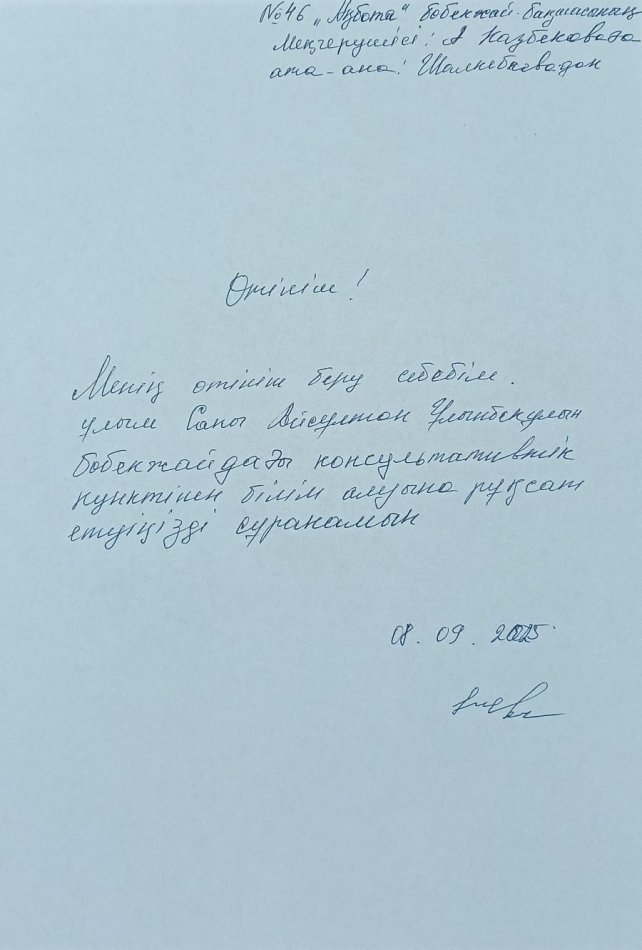 №46 „Ақбота" бөбекжай-бақшасының
Меңгерушісі: А Казбековаға
ата-ана: Шалкебаевадан
Өтініш!
Менің өтініш беру себебім.
ұлым Сапы Айсұлтан Ұлықбекұлын
бөбекжайдағы консультативтік
пунктінен білім алуына рұқсат
етуіңізді сұранамын
08. 09. 2025.